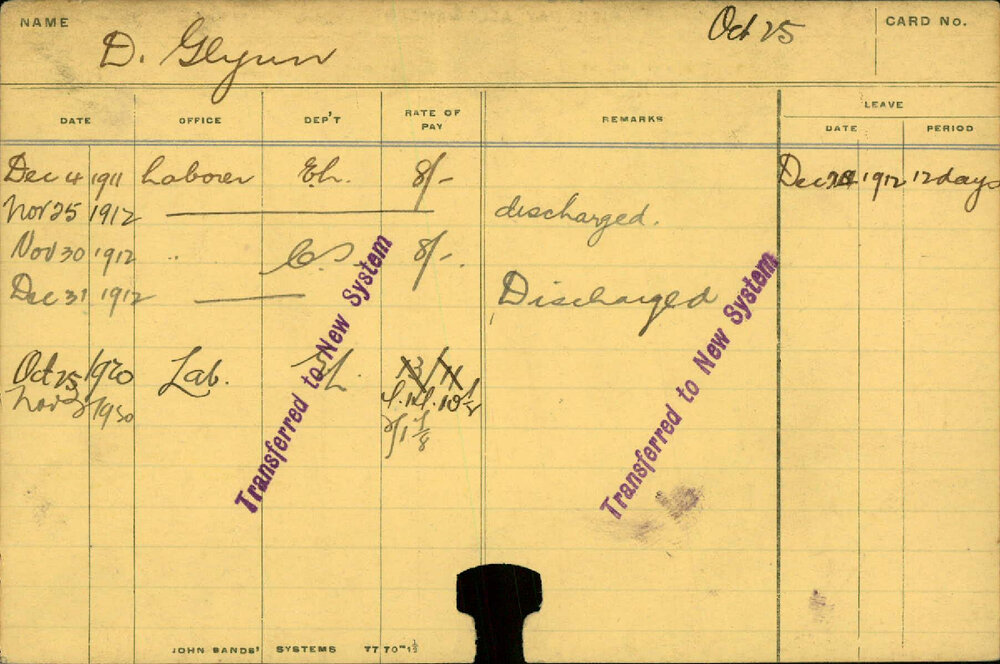 NAME D. Glynn Oct 25 CARD No.
DATE OFFICE DEP'T RATE OF PAY REMARKS LEAVE
DATE PERIOD
Dec 4 1911 Laborer E.L. 8/- Dec 24 1912 12 days
Nov 25 1912 discharged.
Nov 30 1912 " 8/-.
Dec 31 1912 Discharged
Oct 25 1920 Lab. 13/11
1930
2/1 1/8
Transferred to New System
Transferred to New System
JOHN SANDS' SYSTEMS